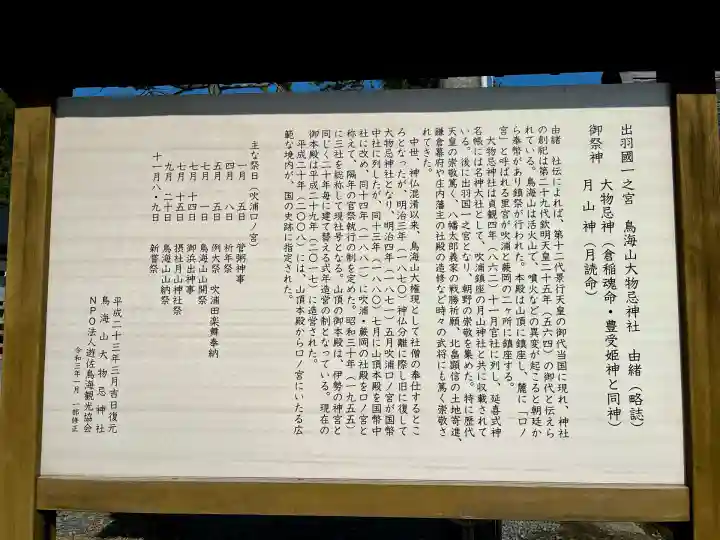 出羽國一之宮　鳥海山大物忌神社　由緒（略誌）
御祭神　大物忌神（倉稲魂命・豊受姫神と同神）
月山神（月読命）
由緒　社伝によれば、第十二代景行天皇の御代当国に現れ、神社
の創祀は第二十九代欽明天皇二十五年（五六四）の御代と伝えら
れている。鳥海山は活火山で、噴火などの異変が起こると朝廷か
ら奉幣があり鎮祭が行われた。本殿は山頂に鎮座し、麓に「口ノ
宮」と呼ばれる里宮が吹浦と蕨岡の二ヶ所に鎮座する。
大物忌神社は貞観四年（八六二）十一月官社に列し、延喜式神
名帳には名神大社として、吹浦鎮座の月山神社と共に収載されて
いる。後に出羽国一之宮となり、朝野の崇敬を集めた。特に歴代
天皇の崇敬篤く、八幡太郎義家の戦勝祈願、北畠顕信の土地寄進、
鎌倉幕府や庄内藩主の社殿の造修など時々の武将にも篤く崇敬さ
れてきた。
中世、神仏混淆以来、鳥海山大権現として社僧の奉仕するとこ
ろとなったが、明治三年（一八七〇）神仏分離に際し旧に復して
大物忌神社となり、明治四年（一八七一）五月吹浦口ノ宮が国幣
中社に列したが、同十三年（一八八〇）七月に山頂本殿を国幣中
社に改め、同十四年（一八八一）に吹浦・蕨岡の社殿を口ノ宮と
称えて、隔年の官祭執行の制を定めた。昭和三十年（一九五五）
に三社を総称して現社号となる。山頂の御本殿は、伊勢の神宮と
同じく二十年毎に建て替える式年造営の制となっている。現在の
御本殿は平成二十九年（二〇一七）に造営された。
平成二十年（二〇〇八）には、山頂本殿から口ノ宮にいたる広
範な境内が、国の史跡に指定された。
主な祭日（吹浦口ノ宮）
一月　五日　管粥神事
四月　八日　祈年祭
五月　五日　例大祭　吹浦田楽舞奉納
七月　一日　鳥海山山開祭
七月　十四日　御浜出神事
七月　十五日　摂社月山神社祭
九月　二十日　鳥海山山納祭
十一月　八・九日　新嘗祭
平成二十三年三月吉日復元
鳥海山大物忌神社
ＮＰＯ法人遊佐鳥海観光協会
令和三年一月　一部修正